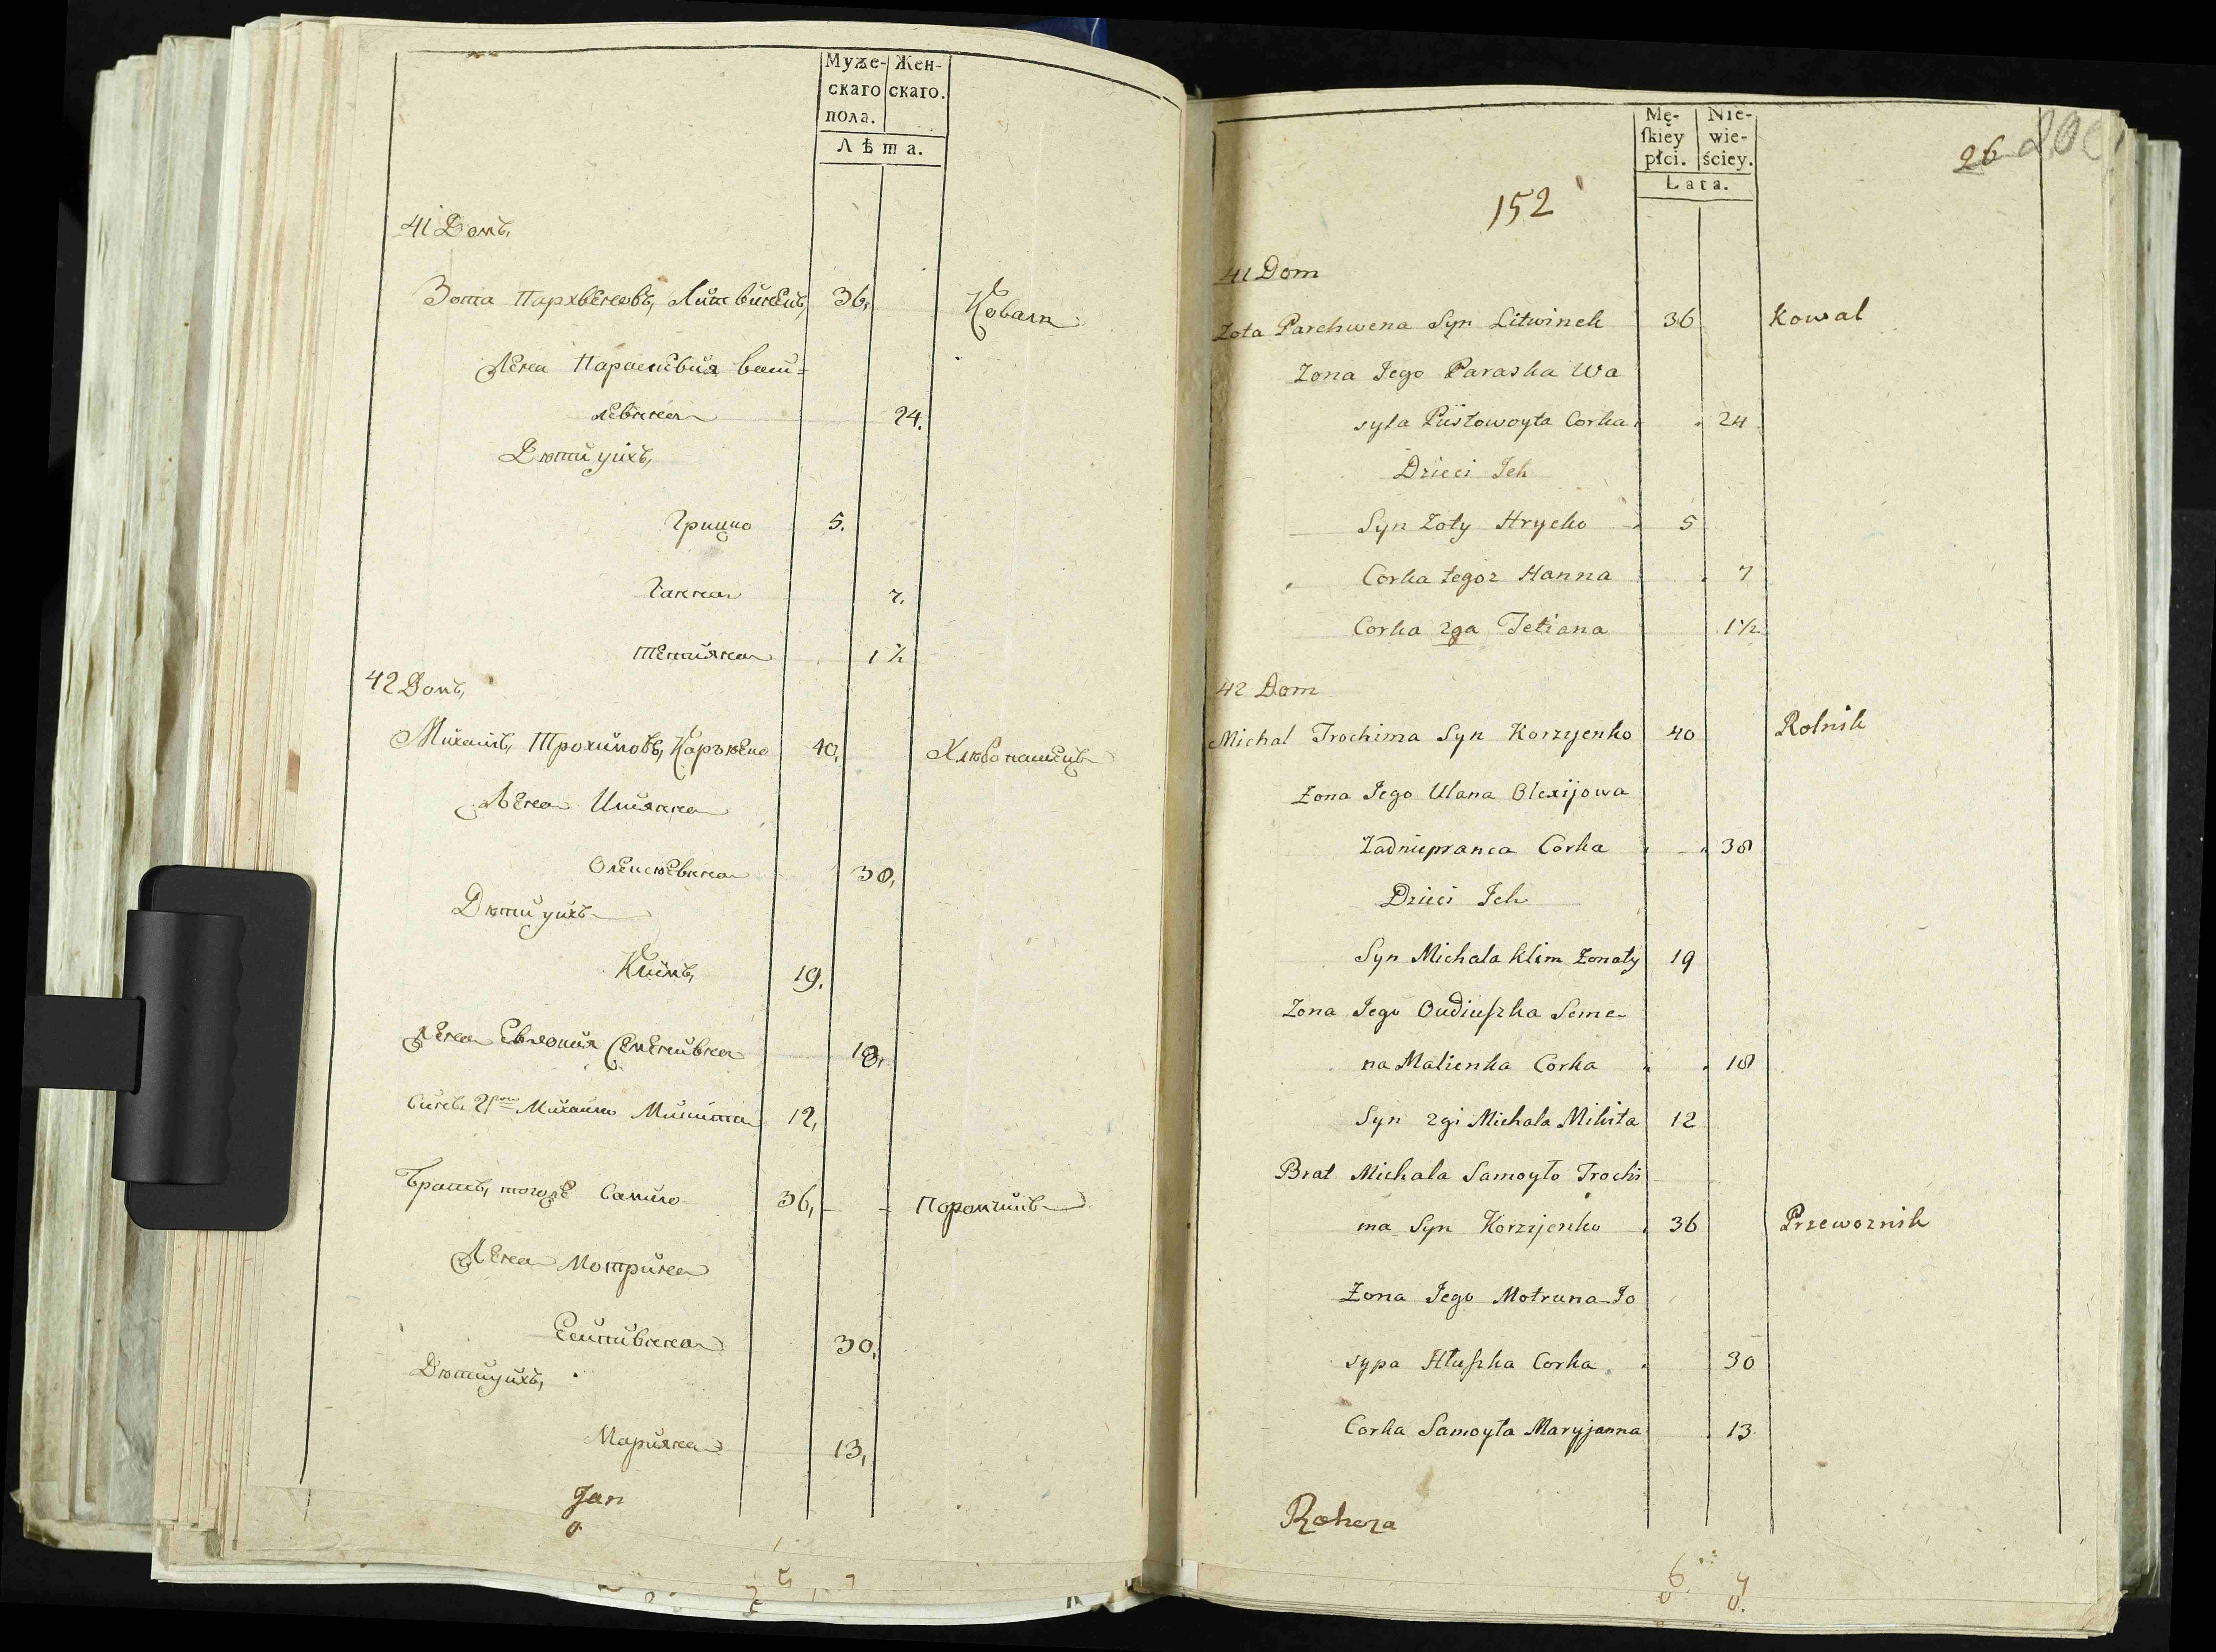 Муже-
скаго
пола.
Жен-
скаго.
Лѣта.
41 Домъ,
Зота Пархвеновъ, Литвинекъ, 36, Ковалъ
Жена Парасквия васи-
левъна 24.
Дѣти ихъ,
Грицко 5.
Ганна 7.
Тетияна 1 ½
42 Домъ,
Михайлъ, Трохимовъ, Каръжено 40, Хлѣбопашецъ
Жена Ульянна
Олексѣевна 38,
Дѣти ихъ
Климъ, 19.
Жена Евдокия Семенивна 18,
Синъ 2й Михайла Микита 12,
Братъ, тогожъ Самило 36, Поромчикъ
Жена Мотруна
Есипивна 30,
Дѣти ихъ,
Марияна 13,
Jan
Mę-
skiey
płci.
Nie-
wie-
ściey.
Lata.
26
152
41 Dom
Zota Parchwena Syn Litwinek 36 Kowal
Zona Jego Paraska Wa
syla Pustowoyta Corka 24
Dzieci Ich
Syn Zoty Hrycko 5
Corka tegoz Hanna 7
Corka 2ga Tetiana 1½
42 Dom
Michal Trochima Syn Korzyenko 40 Rolnik
Zona Jego Ulana Olexijowa
Zadniepranca Corka 38
Dzieci Ich
Syn Michala Klim Zonaty 19
Zona Jego Oudiuszka Seme-
na Malienka Corka 18
Syn 2gi Michala Mikita 12
Brat Michala Samoyło Trochi
ma Syn Korzijenko 36 Przewoznik
Zona Jego Motruna Jo
sypa Hłuszka Corka 30
Corka Samoyła Maryjanna 13
Rohoza
6 7